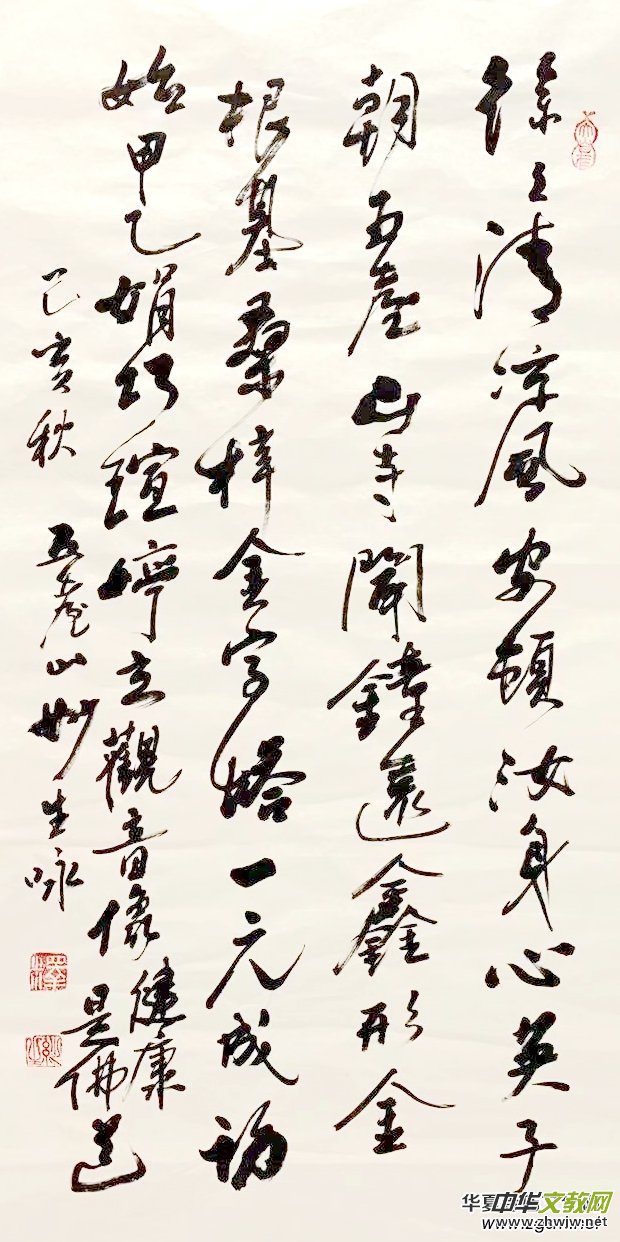 徐々清凉风安顿汝身心英子
朝五台山寺闻钟远鑫形金
根基桑梓金字塔一元成初
始甲乙娟巧瑄婷立觀音像健康
是佛道
己亥秋 五台山妙生咏
中华文教网
www.zhwjw.net